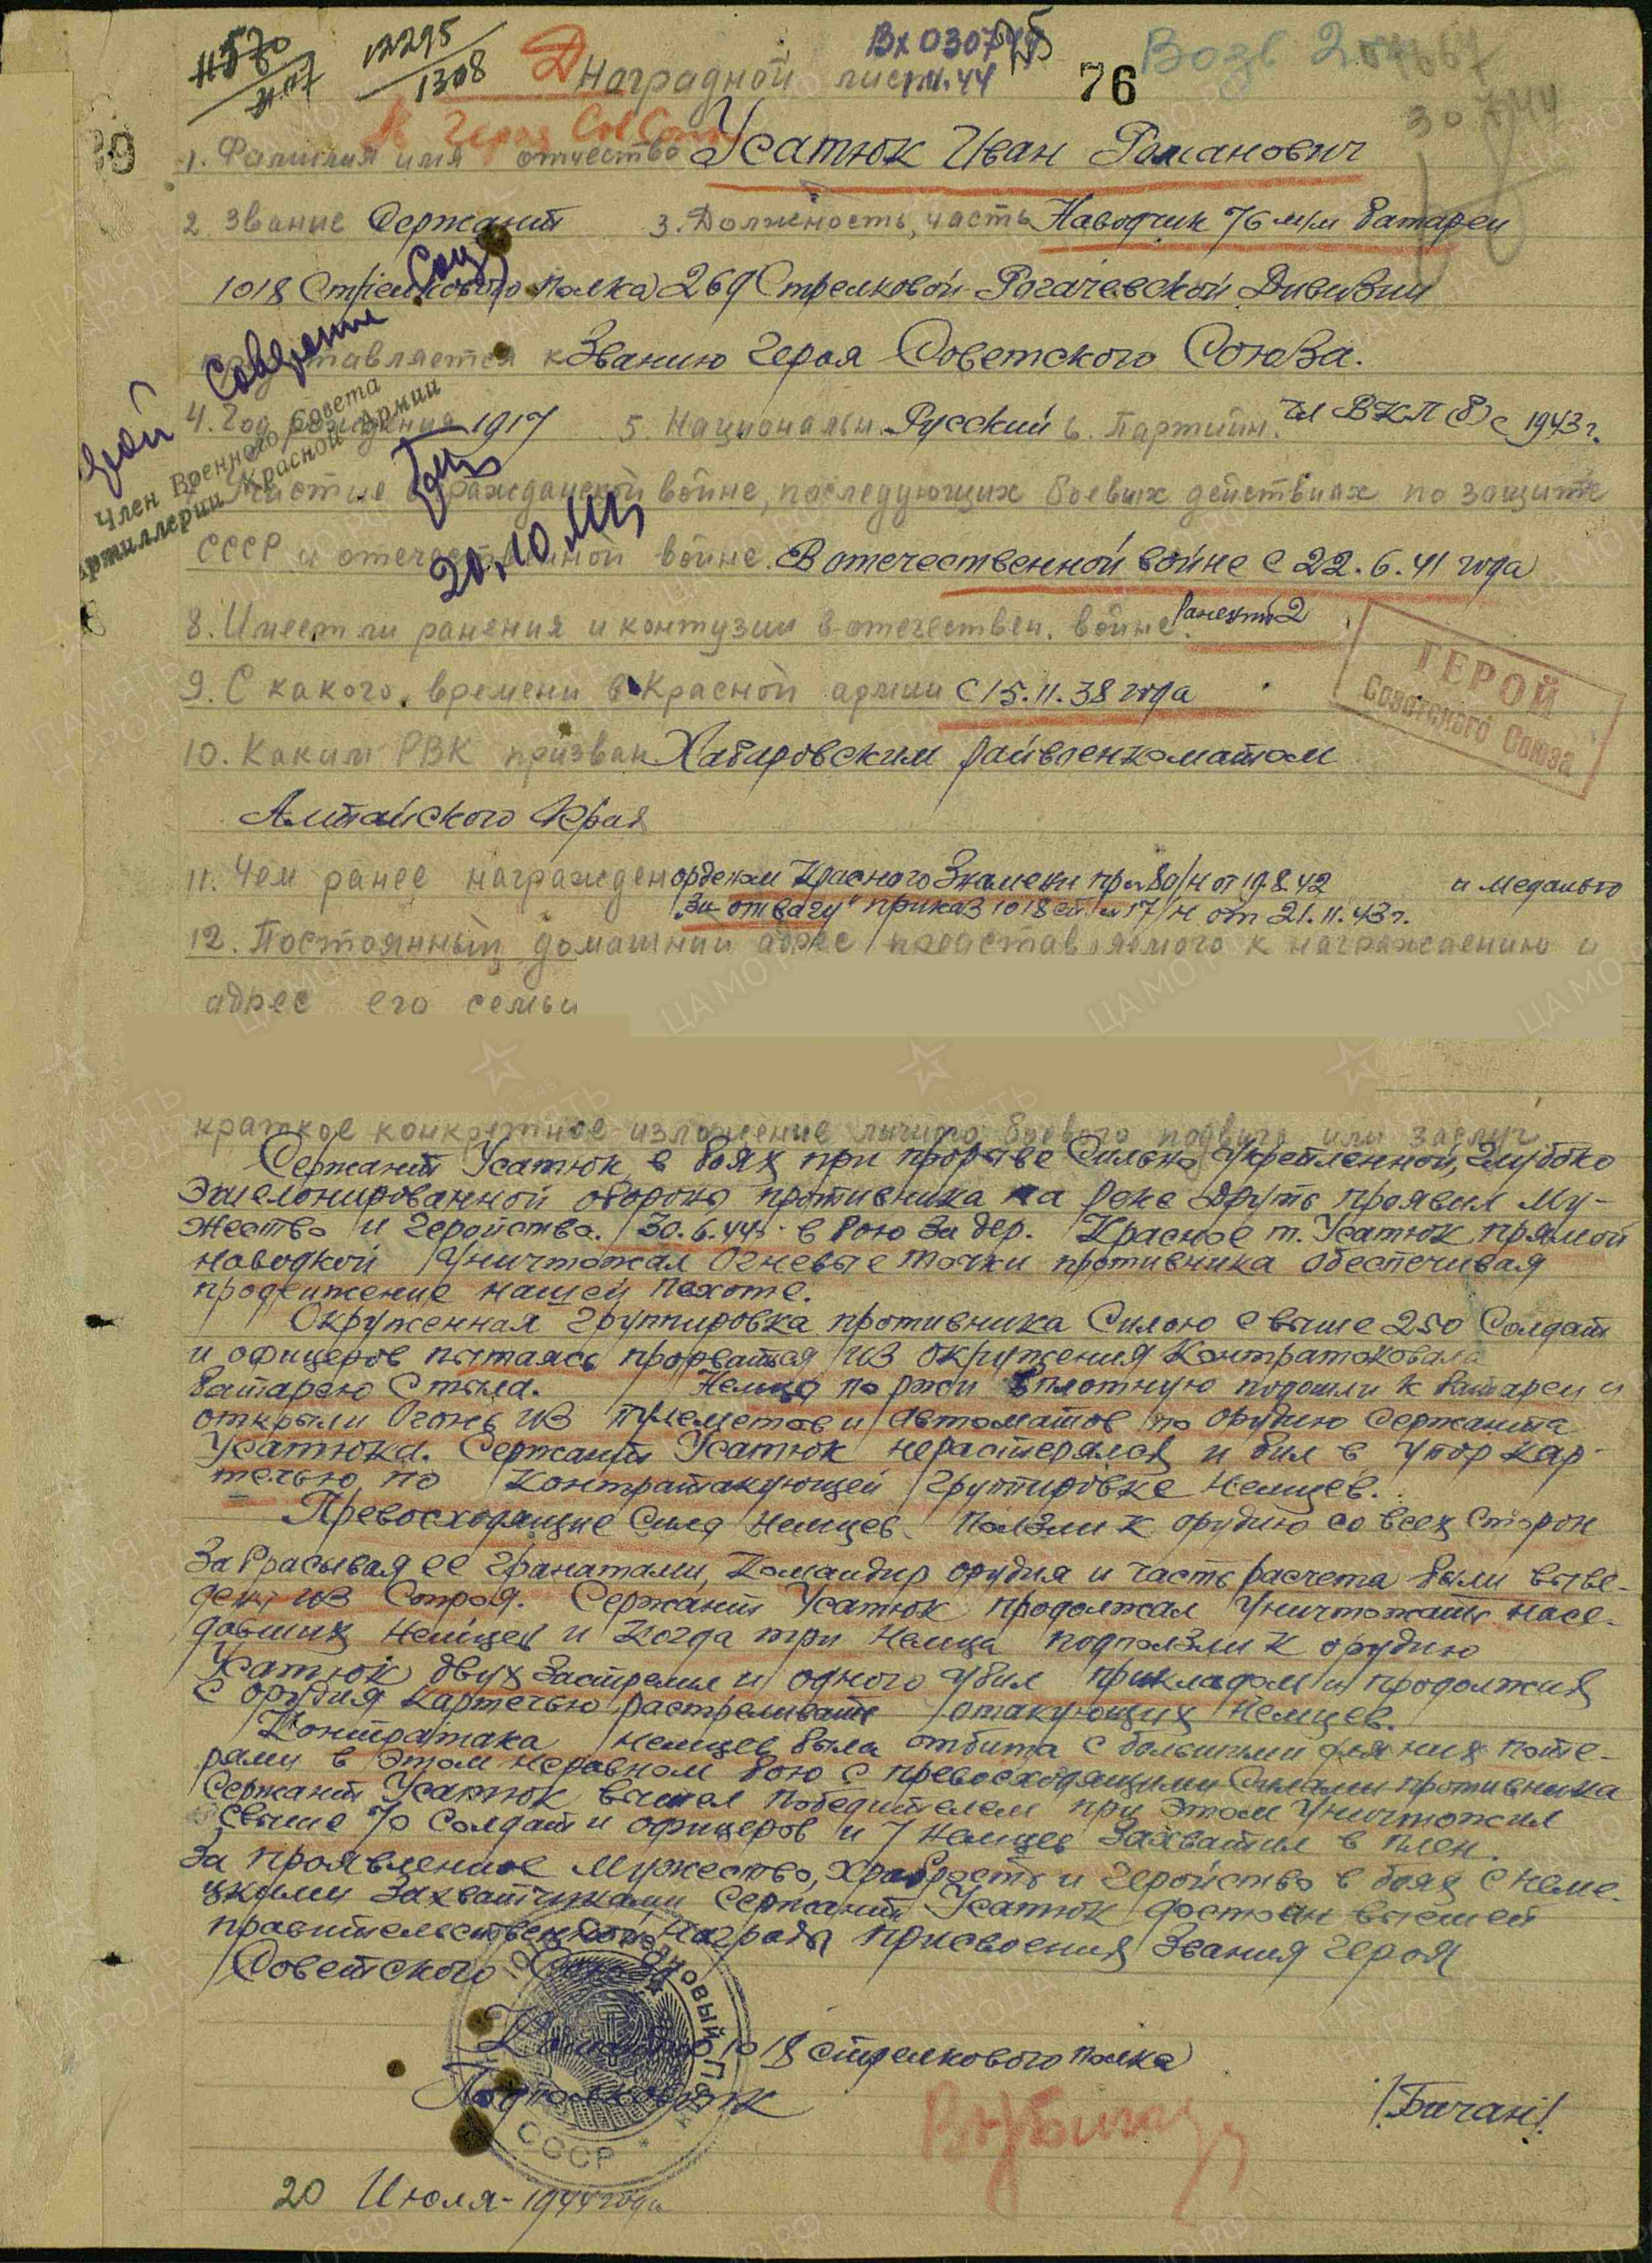 12295
1308
Вх 03074
76
Наградной лист
1. Фамилия имя отчество Усатюк Иван Романович
2. Звание Сержант 3. Должность, часть Наводчик 76 м/м батареи
1018 Стрелкового полка 269 Стрелковой Рогачевской Дивизии
представляется к Званию Героя Советского Союза.
4. Год рождения 1917 5. Национальн. Русский 6. Партийн. чл ВКП(б) с 1943 г.
Член Военного Совета
Артиллерии Красной Армии
20.10
7. Участие в гражданской войне, последующих боевых действиях по защите
СССР и отечественной войне. В отечественной войне с 22.6.41 года
8. Имеет ли ранения и контузии в отечествен. войне. 2
ГЕРОЙ
Советского Союза
9. С какого времени в Красной армии с 15.11.38 года
10. Каким РВК призван Хабаровским райвоенкоматом
Алтайского Края
11. Чем ранее награжден орденом Красного Знамени пр. 80/н от 19.8.42 и медалью
"За отвагу" приказ 1018 сп 17/н от 21.11.43 г.
12. Постоянный домашний адрес представляемого к награждению и
адрес его семьи
краткое конкретное изложение личного боевого подвига или заслуг
Сержант Усатюк в боях при прорыве Сильно Укрепленной, глубоко
эшелонированной обороны противника на реке Друть проявил му-
жество и геройство. 30.6.44 г. в бою за дер. Красное т. Усатюк прямой
наводкой уничтожал Огневые точки противника обеспечивая
продвижение нашей пехоте.
Окруженная группировка противника Силою свыше 250 Солдат
и офицеров пытаясь прорваться из окружения Контратоковала
батарею с тыла. Немцы по ржи вплотную подошли к батареи и
открыли Огонь из пулеметов и автоматов по орудию Сержанта
Усатюка. Сержант Усатюк нерастерялся и бил в упор кар-
течью по контратакующей группировке Немцев.
Превосходящие Силы Немцев ползли к орудию со всех Сторон
Забрасывая ее гранатами, Командир орудия и часть расчета были выве-
дены из Строя. Сержант Усатюк продолжал Уничтожать насе-
давших Немцев и когда три Немца подползли к орудию
Усатюк двух застрелил и одного убил прикладом и продолжил
с орудия картечью растреливать атакующих Немцев.
Контратака Немцев была отбита с большими для них поте-
рями в этом неравном бою с превосходящими Силами противника
Сержант Усатюк вышел победителем при этом Уничтожил
Свыше 70 Солдат и офицеров и 7 Немцев Захватил в плен.
За проявленное мужество, храбрость и геройство в боях с неме-
цкими Захватчиками Сержант Усатюк достоин высшей
правительственной награды присвоения Звания Героя
Советского Союза
Командир 1018 стрелкового полка
Подполковник /Бичан/
СССР
20 Июля 1944 года